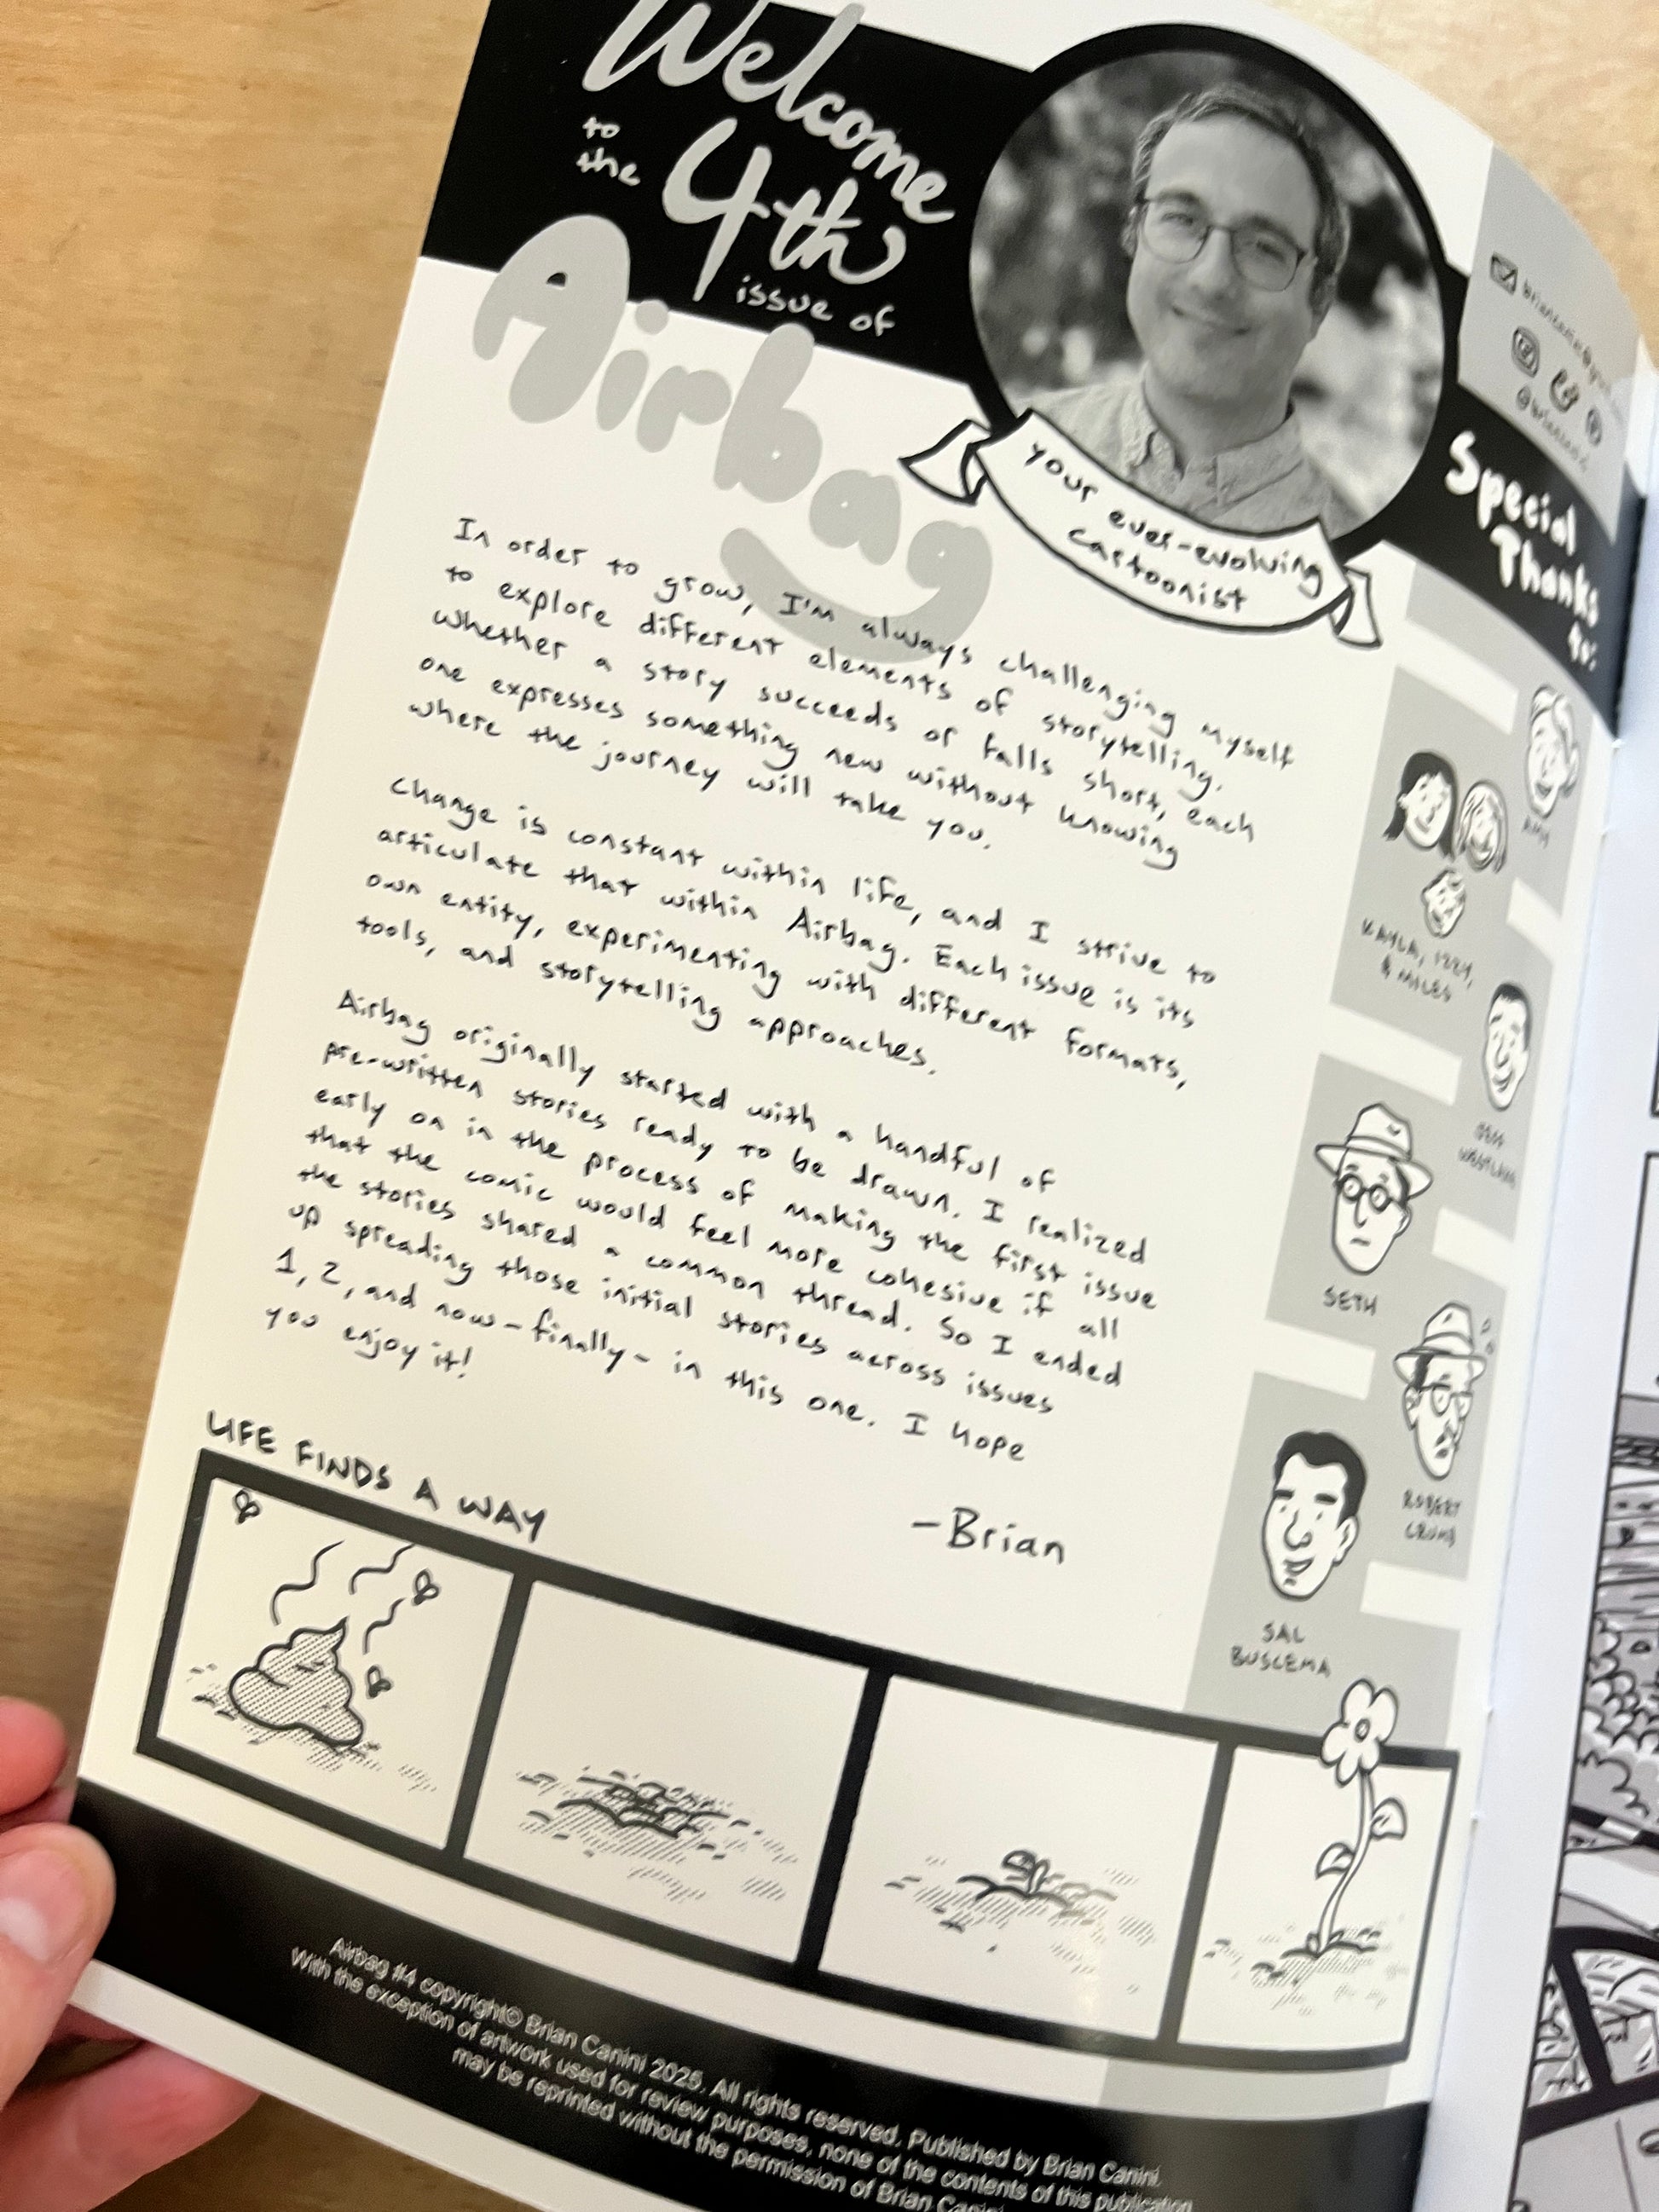 Welcome
to
the
4th
issue of
Airbag
your ever-evolving
cartoonist
In order to grow, I'm always challenging myself
to explore different elements of storytelling.
Whether a story succeeds or falls short, each
one expresses something new without knowing
where the journey will take you.
Change is constant within life, and I strive to
articulate that within Airbag. Each issue is its
own entity, experimenting with different formats,
tools, and storytelling approaches.
Airbag originally started with a handful of
pre-written stories ready to be drawn. I realized
early on in the process of making the first issue
that the comic would feel more cohesive if all
the stories shared a common thread. So I ended
up spreading those initial stories across issues
1, 2, and now-finally- in this one. I hope
you enjoy it!
-Brian
Special
Thanks
to:
AMY
KAYLA, IZZY,
& MILES
SETH
ROBERT
CRUMB
SAL
BUSCEMA
LIFE FINDS A WAY
Airbag #4 copyright© Brian Canini 2025. All rights reserved. Published by Brian Canini.
With the exception of artwork used for review purposes, none of the contents of this publication
may be reprinted without the permission of Brian Canini.